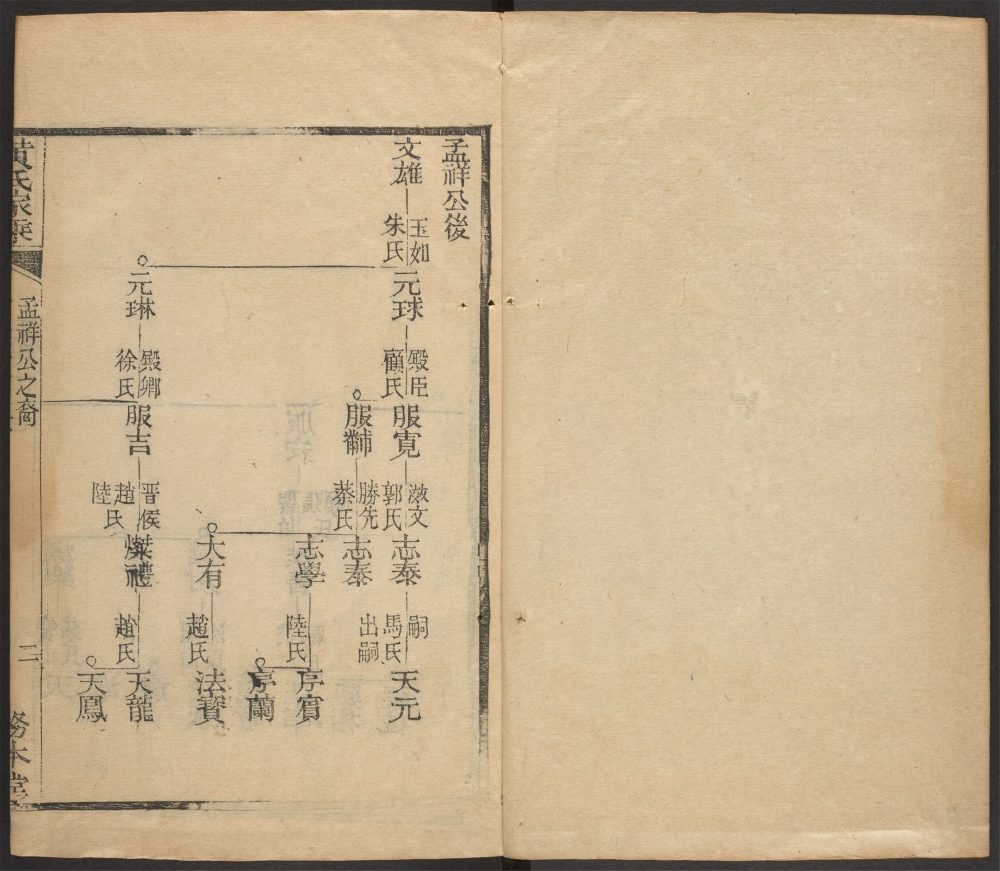 孟祥公後
文雄
玉如
朱氏
元球
殿臣
顧氏
服寬
澂文
郭氏
志泰
嗣
馬氏
天元
服黼
勝先
蔡氏
志泰
出嗣
志學
陸氏
序賓
序蘭
大有
趙氏
法寶
元琳
殿卿
徐氏
服吉
晋侯
趙氏
陸
燦禮
趙氏
天龍
天鳳
黄氏家乘
孟祥公之裔
二
務本堂